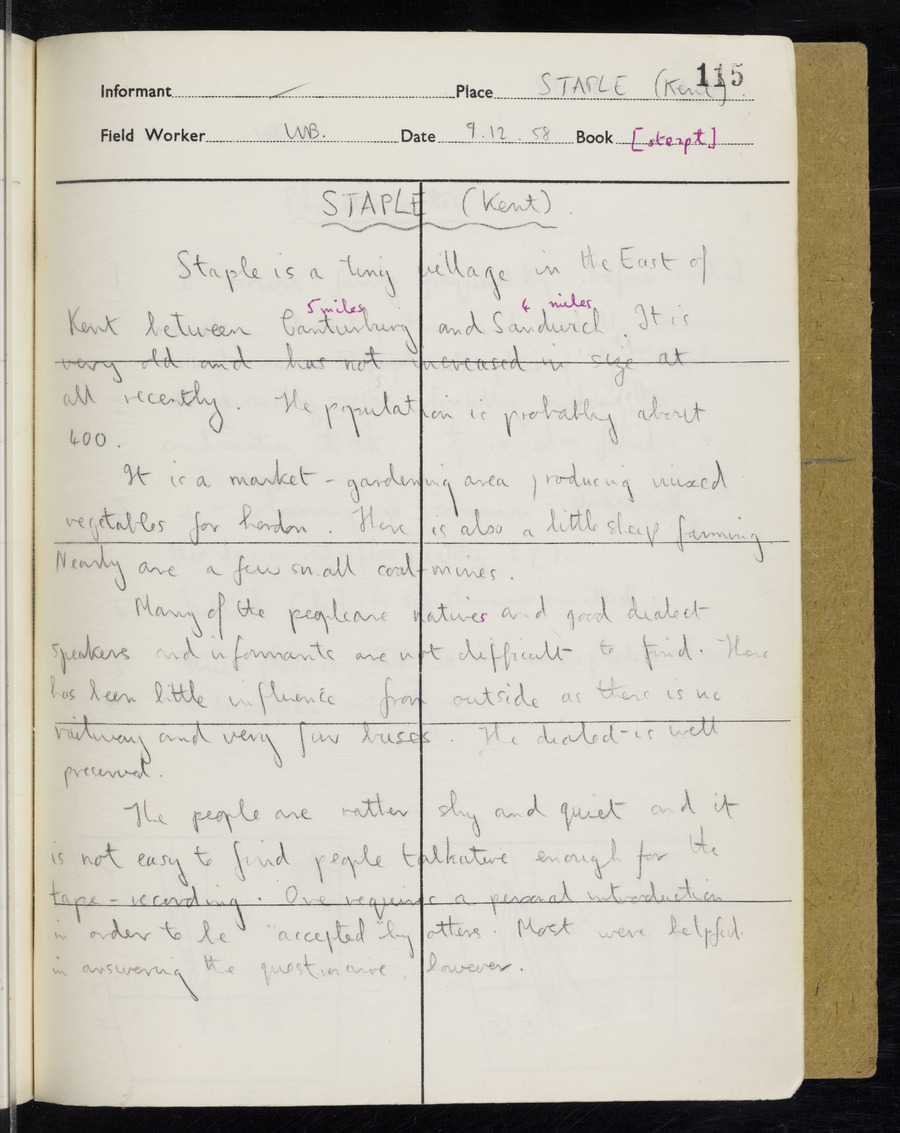 115
Informant Place STAPLE (Kent).
Field Worker WB. Date 9.12.58 Book [sterpt]
STAPLE (Kent)
Staple is a tiny village in the East of
5 miles 4 miles
Kent between Canturbury and Sandwich. It is
very old and has not increased in size at
all recently. The population is probably about
400.
It is a market-gardening area producing mixed
vegetables for London. There is also a little sheep farming
Nearly are a few small coal-mines.
Many of the people are natives and good dialect
speakers and informants are not difficult to find. There
has been little influence from outside as there is no
railway and very few buses. The dialect is well
preserved.
The people are rather shy and quiet and it
is not easy to find people talkative enough for the
tape-recording. One requires a personal introduction
in order to be "accepted" by others. Most were helpful
in answering the questionaire, however.